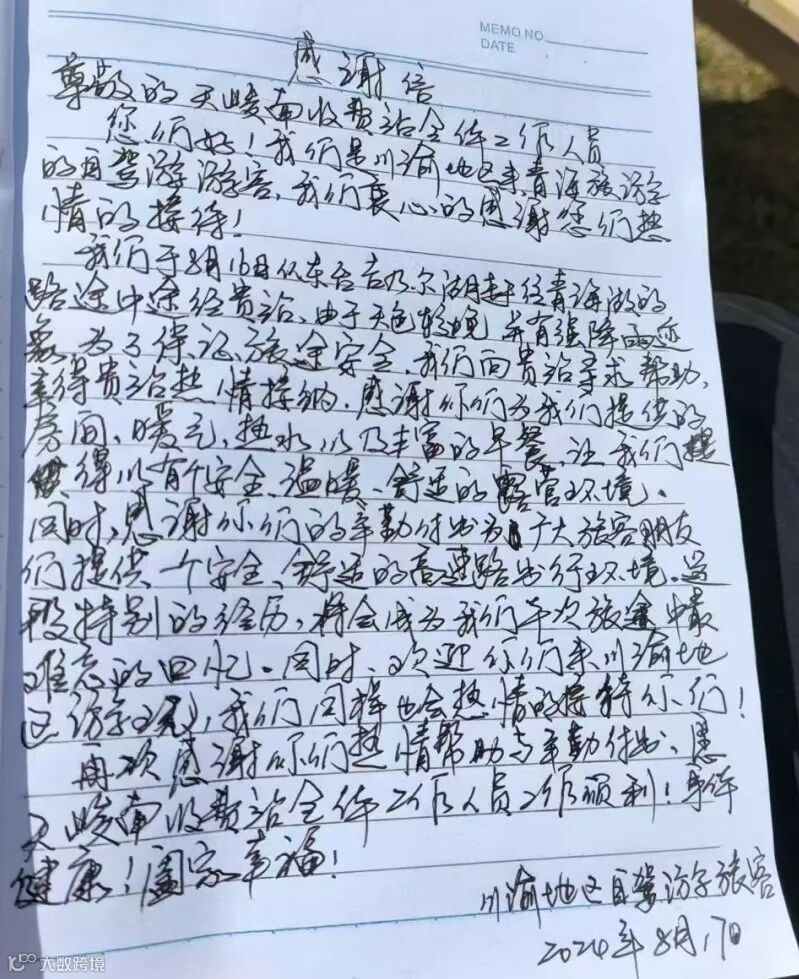 MEMO NO.
DATE
感谢信
尊敬的天峻南收费站全体工作人员
您们好！我们是川渝地区来青海旅游
的自驾游游客，我们衷心的感谢您们热
情的接待！
我们于8月16日从东台吉乃尔湖赶往青海湖的
路途中途经贵站、由于天色较晚，并有强降雨
为了保证旅途安全，我们向贵站寻求帮助，
幸得贵站热情接纳，感谢你们为我们提供的
房间、暖气，热水以及丰富的早餐，让我们
得以有个安全、温暖、舒适的露营环境。
同时，感谢你们的辛勤付出为广大旅客朋友
们提供一个安全、舒适的高速路出行环境。这
段特别的经历，将会成为我们本次旅途中最
难忘的回忆。同时、欢迎你们来川渝地
区游玩，我们同样也会热情的接待你们！
再次感谢你们热情帮助与辛勤付出、愿
天峻南收费站全体工作人员工作顺利！身体
健康！阖家幸福！
川渝地区自驾游旅客
2024年8月17日
大数跨境